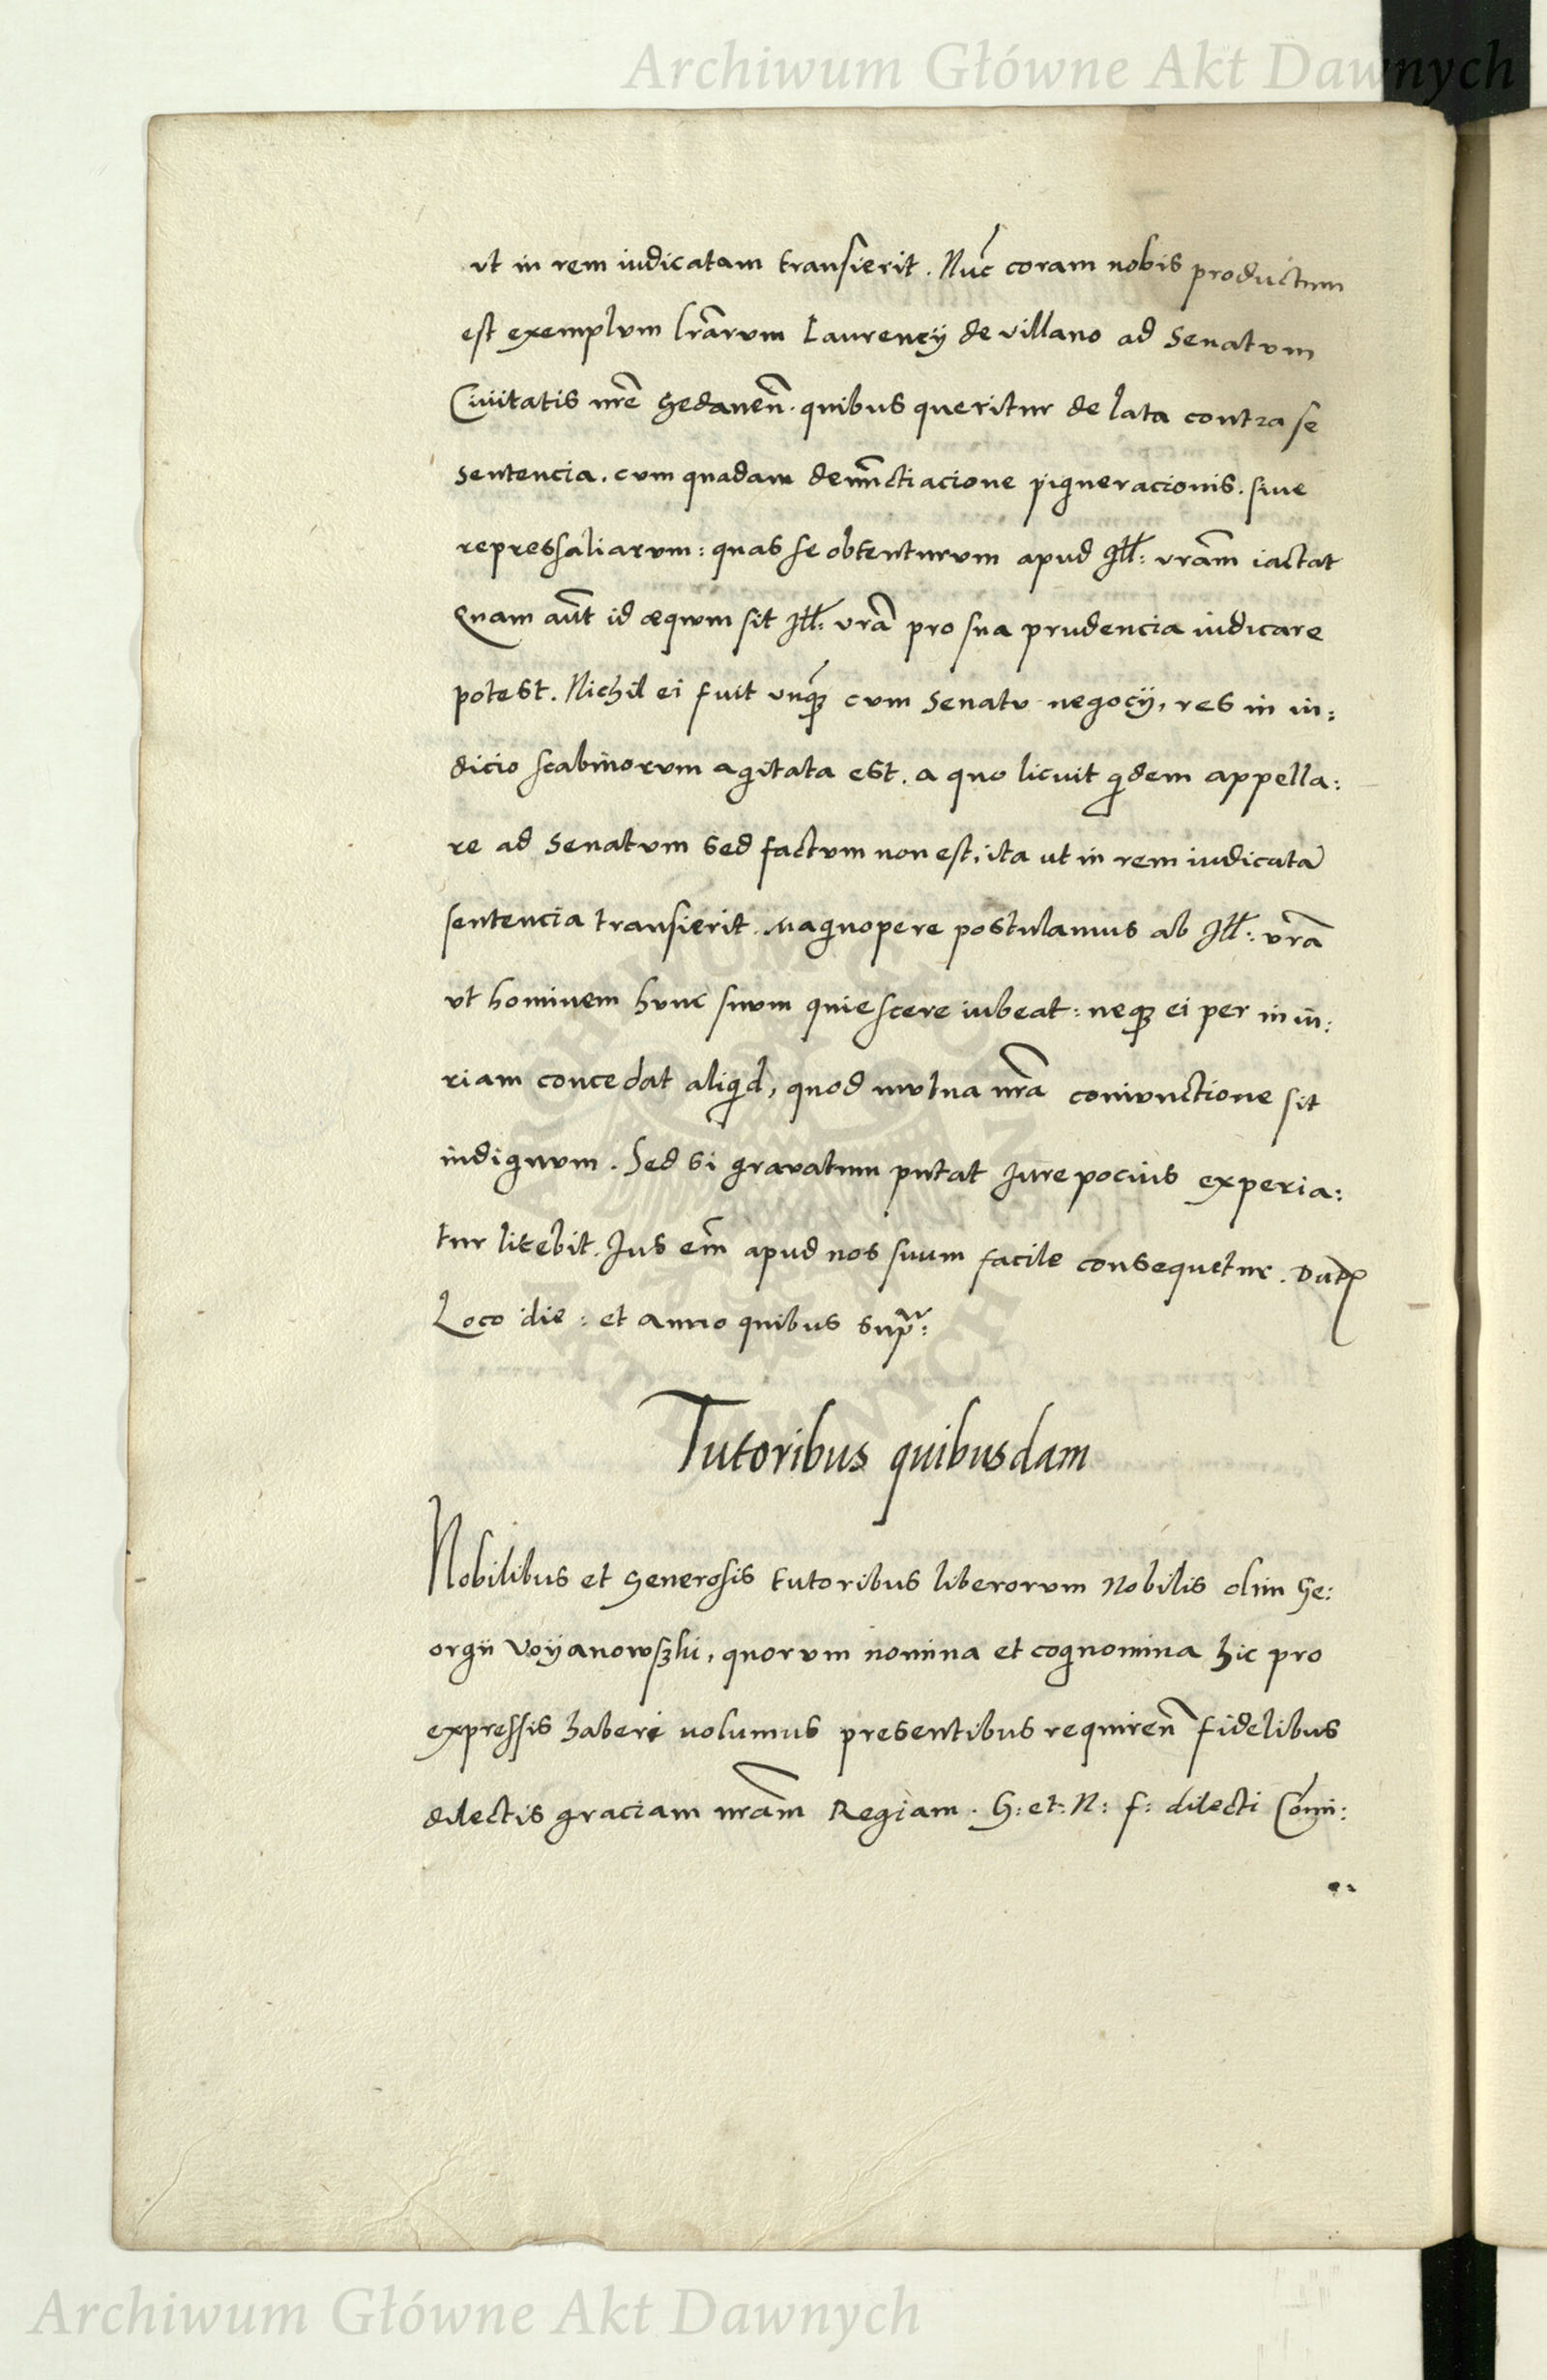 Archiwum Główne Akt Dawnych
vt in rem iudicatam transierit. Nuc̄ coram nobis productum
est exemplum lr̄arum Laurencÿ de villano ad Senatum
Ciuitatis nr̄e Gedanen̄. quibus queritur de lata contra se
sentencia. cum quadam denūctiacione pigneracionis. siue
repressaliarum: quas se obtenturum apud Ill: vram̄ iactat
Quam aūt id æquum sit Ill: vrā pro sua prudencia iudicare
potest. Nichil ei fuit vnq̄ȝ cum Senatu negocÿ, res in iu:
dicio scabinorum agitata est. a quo licuit qidem appella:
re ad Senatum sed factum non est, ita ut in rem iudicatā
sentencia transierit. Magnopere postulamus ab Ill: vrā
vt hominem hunc suum quiescere iubeat: neqȝ ei per iniu:
riam concedat aliqid, quod mutua nr̄a coniunctione sit
indignum. Sed si gravatum putat Jure pocius experia:
tur licebit. Jus em̄ apud nos suum facile consequetur. Datꝭ
Loco die: et anno quibus supᵃ:
Tutoribus quibusdam
Nobilibus et Generosis tutoribus liberorum Nobilis olim Ge:
orgii Voÿanowsȝki, quorum nomina et cognomina hic pro
expressis haberi volumus presentibus requiren̄ fidelibus
dilectis graciam nram̄ Regiam. G: et: N: f: dilecti Com̄i:
Archiwum Główne Akt Dawnych